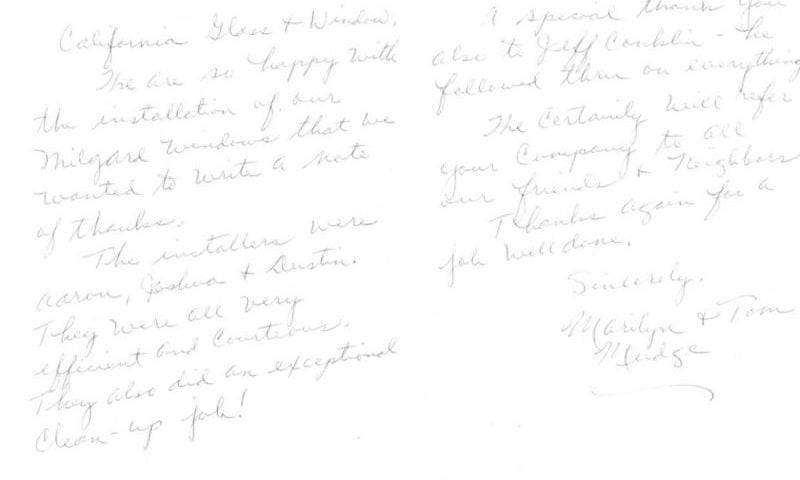 California Glass & Window,
We are so happy with
the installation of our
Milgard Windows that we
wanted to write a note
of thanks.
The installers were
Aaron, Joshua & Dustin.
They were all very
efficient and Courteous.
They also did an exceptional
Clean-up job!
A special thank you
also to Jeff Conklin - he
followed thru on everything
We Certainly Will refer
your Company to all
our friends & Neighbors
Thanks again for a
job Well done.
Sincerely,
Marilyn & Tom
Mudge